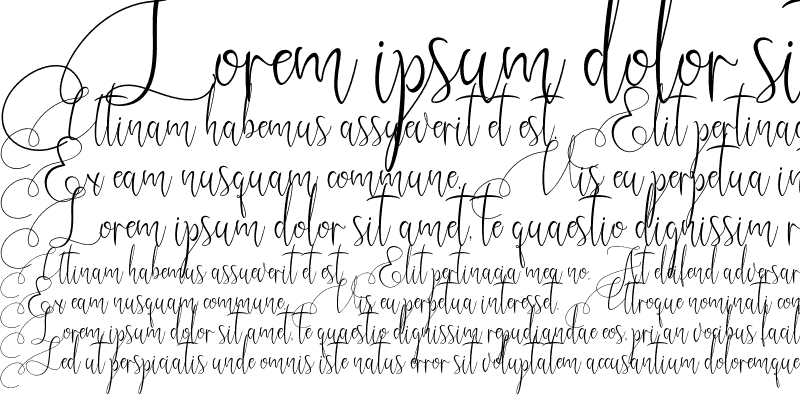 Lorem ipsum dolor si
Utinam habemus assueverit et est. Elit pertinac
Ex eam nusquam commune. Vis eu perpetua in
Lorem ipsum dolor sit amet, te quaestio dignissim r
Utinam habemus assueverit et est. Elit pertinacia mea no. At eleifend adversar
Ex eam nusquam commune. Vis eu perpetua interesset. Utroque nominati con
Lorem ipsum dolor sit amet, te quaestio dignissim repudiandae eos, pri an vocibus facil
Sed ut perspiciatis unde omnis iste natus error sit voluptatem accusantium doloremque